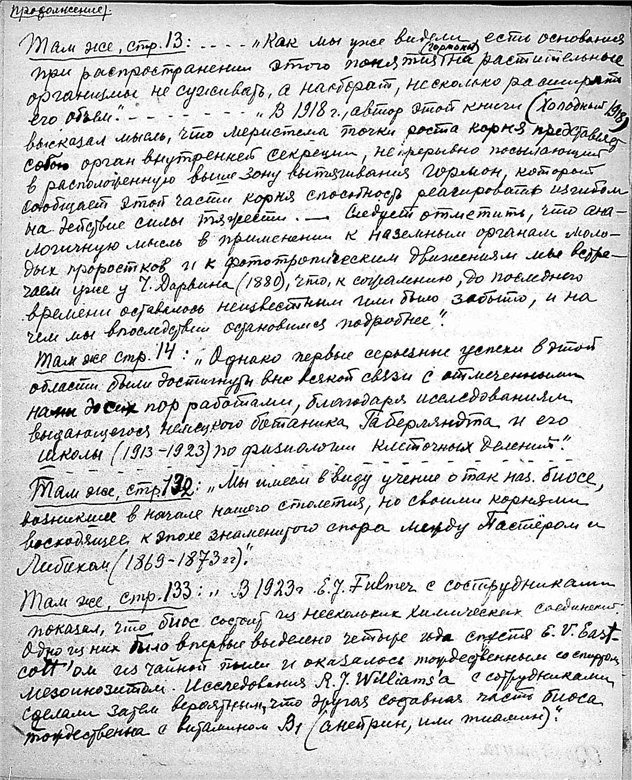 Продолжение/
Там же, стр. 13: - . - - . - „Как мы уже видели, есть основания
при распространении этого понятия (гормоны) на растительные
организмы не суживать, а наоборот, несколько расширять
его объем". - - - - - - - - - - „В 1918 г., автор этой книги (Холодный 1918)
высказал мысль, что меристема точки роста корня представляет
собою орган внутренней секреции, непрерывно посылающий
в расположенную выше зону вытягивания гормон, который
сообщает этой части корня способность реагировать изгибом
на действие силы тяжести. — Следует отметить, что ана-
логичную мысль в применении к наземным органам моло-
дых проростков и к фототропическим движениям мы встре-
чаем уже у Ч. Дарвина (1880), что, к сожалению, до последнего
времени оставалось неизвестным или было забыто, и на
чем мы впоследствии остановимся подробнее".
Там же стр. 14: „Однако первые серьезные успехи в этой
области были достигнуты вне всякой связи с отмеченными
нами до сих пор работами, благодаря исследованиям
выдающегося немецкого ботаника Габерляндта и его
школы (1913-1923) по физиологии клеточных делений".
Там же, стр. 132: „Мы имеем в виду учение о так наз. биосе,
возникшее в начале нашего столетия, но своими корнями
восходящее к эпохе знаменитого спора между Пастёром и
Либихом (1869-1873 гг)".
Там же, стр. 133: „В 1923 г. E. J. Fulmer с сострудниками
показал, что биос состоит из нескольких химических соединений.
Одно из них было впервые выделено четыре года спустя E. V. East-
cott'ом из чайной пыли и оказалось тождественным со спиртом
мезоинозитом. Исследования R. J. Williams'а с сотрудниками
сделали затем вероятным, что другая составная часть биоса
тождественна с витамином B₁ (анейрин, или тиамин)".